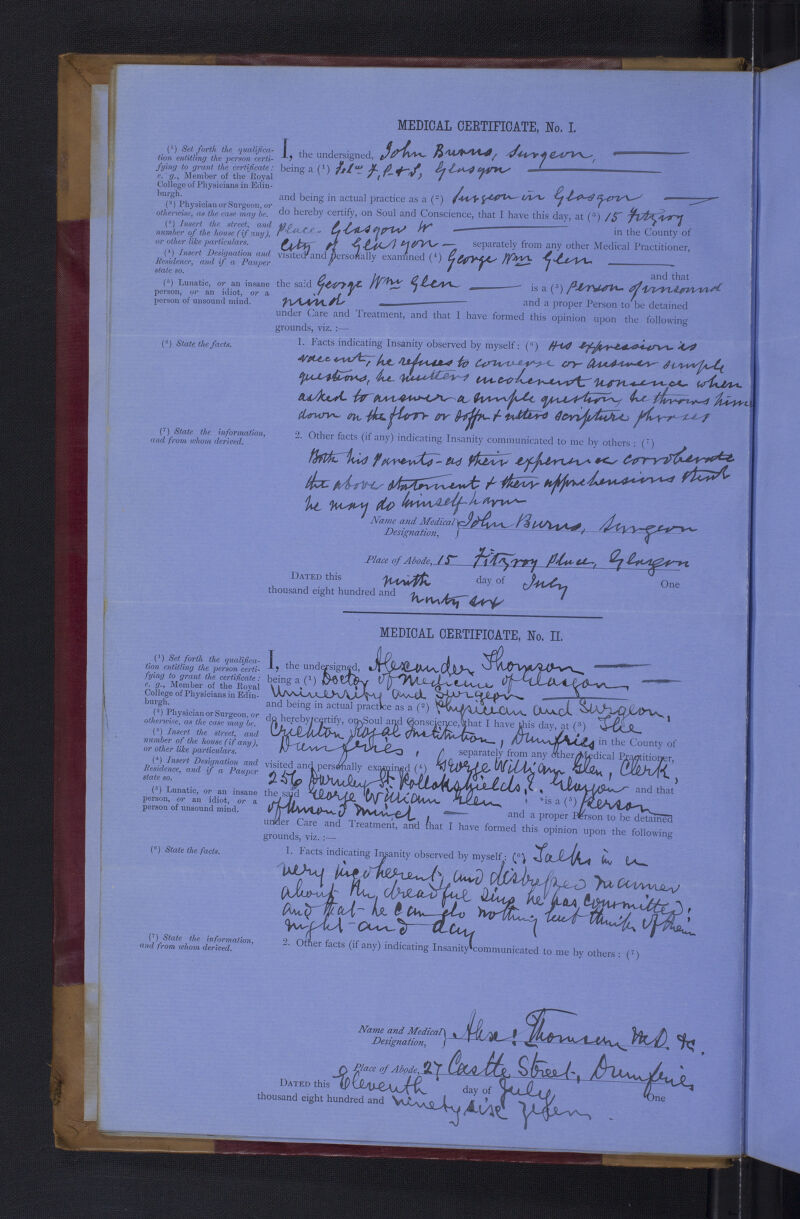 MEDICAL CERTIFICATE, No. I.
(1) Set forth the qualifica-
tion entitling the person certi-
fying to grant the certificate:
e. g., Member of the Royal
College of Physicians in Edin-
burgh.
(2) Physician or Surgeon, or
otherwise, as the case may be.
(3) Insert the street, and
number of the house (if any),
or other like particulars.
(4) Insert Designation and
Residence, and if a Pauper
state so.
(5) Lunatic, or an insane
person, or an idiot, or a
person of unsound mind.
I, the undersigned, John Burns, Surgeon,
being a (1) F, P. & S, Glasgow
and being in actual practice as a (2) Surgeon in Glasgow
do hereby certify, on Soul and Conscience, that I have this day, at (3) 15 Fitzroy
Place - Glasgow W in the County of
City of Glasgow - separately from any other Medical Practitioner,
visited and personally examined (4) George Wm Glen
and that
the said George Wm Glen is a (5) person of unsound
mind and a proper Person to be detained
under Care and Treatment, and that I have formed this opinion upon the following
grounds, viz. :—
(6) State the facts.
1. Facts indicating Insanity observed by myself: (6) His expression is
vaccent, he refuses to converse or answer simple
questions, he mutters incoherent nonsence when
asked to answer a simple question, he throws him
down on the floor or soffa & utters scripture phrases
(7) State the information,
and from whom derived.
2. Other facts (if any) indicating Insanity communicated to me by others: (7)
Both his Parents - as their experience corroberate
the above statement & their apprehensions that
he may do himself harm
Name and Medical Designation, John Burns, Surgeon
Place of Abode, 15 Fitzroy Place, Glasgow
DATED this ninth day of July One
thousand eight hundred and ninty six
MEDICAL CERTIFICATE, No. II.
(1) Set forth the qualifica-
tion entitling the person certi-
fying to grant the certificate:
e. g., Member of the Royal
College of Physicians in Edin-
burgh.
(2) Physician or Surgeon, or
otherwise, as the case may be.
(3) Insert the street, and
number of the house (if any),
or other like particulars.
(4) Insert Designation and
Residence, and if a Pauper
state so.
(5) Lunatic, or an insane
person, or an idiot, or a
person of unsound mind.
I, the undersigned, Alexander Thomson
being a (1) Doctor of Medicine of Glasgow
University and Surgeon
and being in actual practice as a (2) Physician and Surgeon,
do hereby certify, on Soul and Conscience, that I have this day, at (3) The
Crichton Royal Institution, Dumfries in the County of
Dumfries, separately from any other Medical Practitioner,
visited and personally examined (4) George William Glen, Clerk,
256 Darnley St. Pollokshields, E. Glasgow and that
the said George William Glen is a (5) Person
of Unsound mind, and a proper Person to be detained
under Care and Treatment, and that I have formed this opinion upon the following
grounds, viz. :—
(6) State the facts.
1. Facts indicating Insanity observed by myself: (6) Talks in a
very incoherent and distressed manner
about the dreadful sins he has committed;
and that he can do nothing but think of them
night and day
(7) State the information,
and from whom derived.
2. Other facts (if any) indicating Insanity communicated to me by others: (7)
Name and Medical Designation, Alexr. Thomson M.D. &c.
Place of Abode, 27 Castle Street, Dumfries
DATED this Eleventh day of July One
thousand eight hundred and ninety six